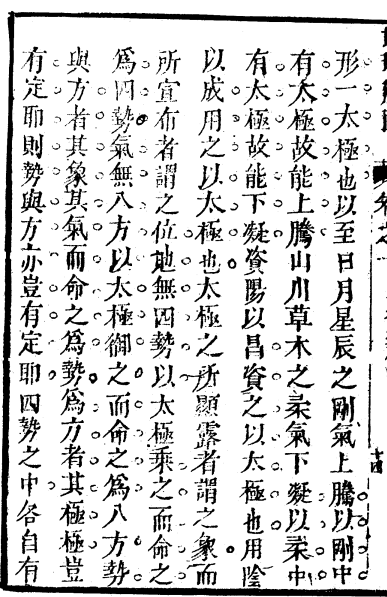 形一太極也以至日月星辰之剛氣上騰以剛中
有太極故能上騰山川草木之柔氣下凝以柔中
有太極故能下凝資陽以昌資之以太極也用陰
以成用之以太極也太極之所顯露者謂之象而
所宣布者謂之位地無四勢以太極乘之而命之
爲四勢氣無八方以太極御之而命之爲八方勢
與方者其象其氣而命之爲勢爲方者其極極豈
有定耶則勢與方亦豈有定耶四勢之中各自有